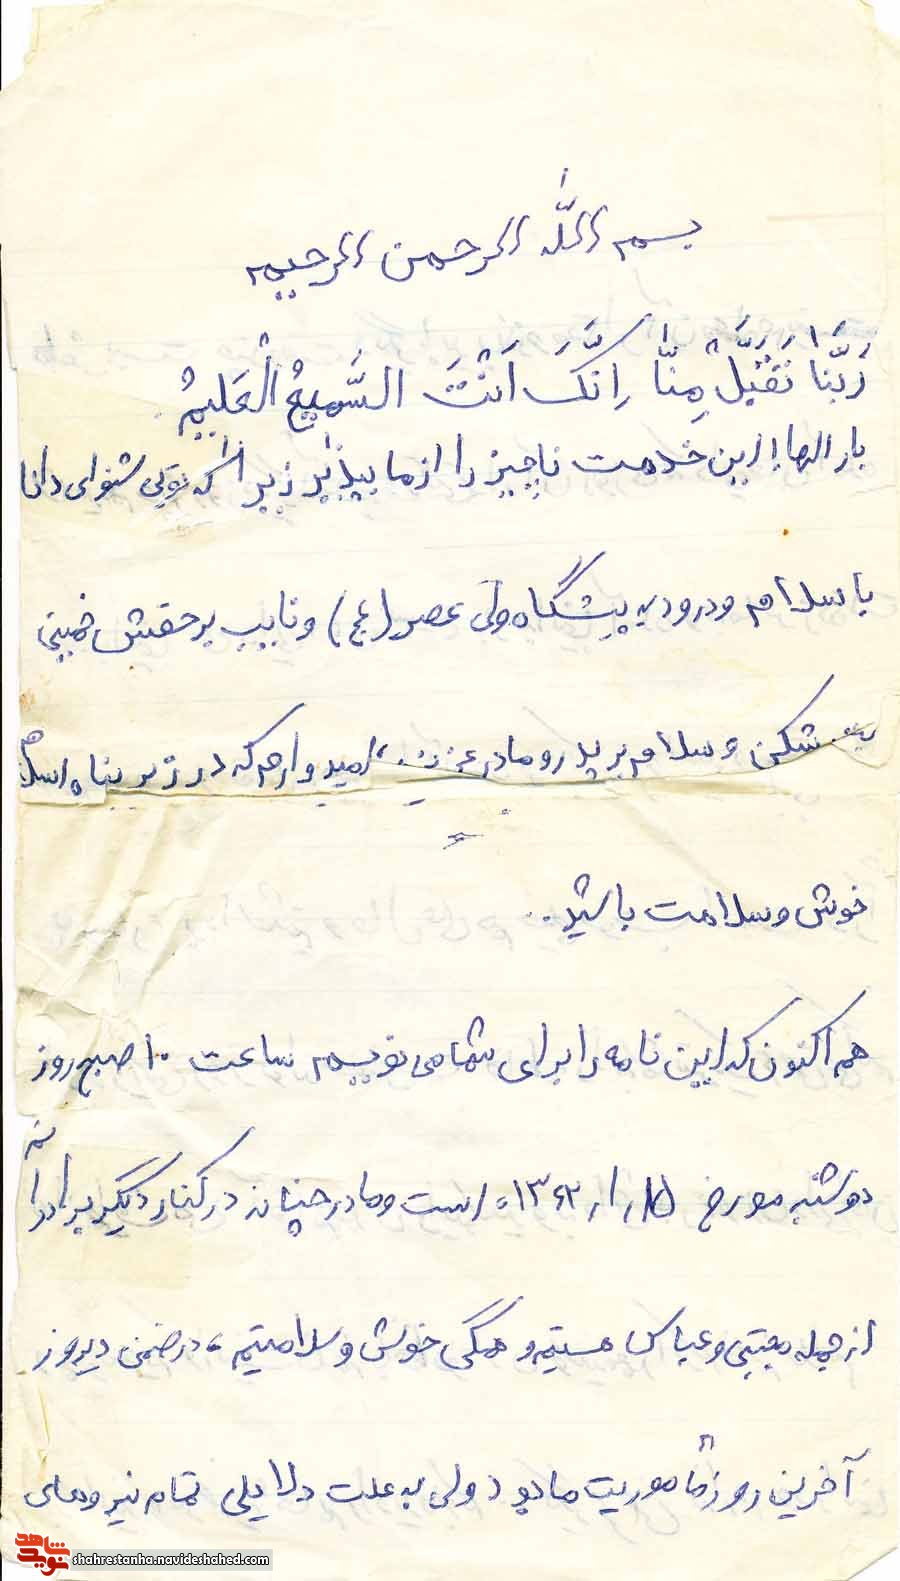 بسم اللّه الرحمن الرحیم
رَبَّنا تَقَبَّلْ مِنّا اِنَّکَ اَنْتَ السَّمیعُ الْعَلیمُ
بار الها! این خدمت ناچیز را از ما بپذیر زیرا که توئی شنوای دانا
با سلام و درود به پیشگاه ولی عصر (عج) و نایب برحقش خمینی
بت شکن و سلام بر پدر و مادر عزیز. امیدوارم که در زیر پناه اسلام
خوش و سلامت باشید.
هم اکنون که این نامه را برای شما می نویسم ساعت ۱۰ صبح روز
دوشنبه مورخ ۱۵/۱/۱۳۶۲ است و ما در کنار دیگر برادران
از جمله مجتبی و عباس هستیم و همگی خوش و سلامتیم، در ضمن دیروز
آخرین روز مأموریت ما بود ولی به علت دلایلی تمام نیروهای
شاهد نوید
shahrestanha.navideshahed.com